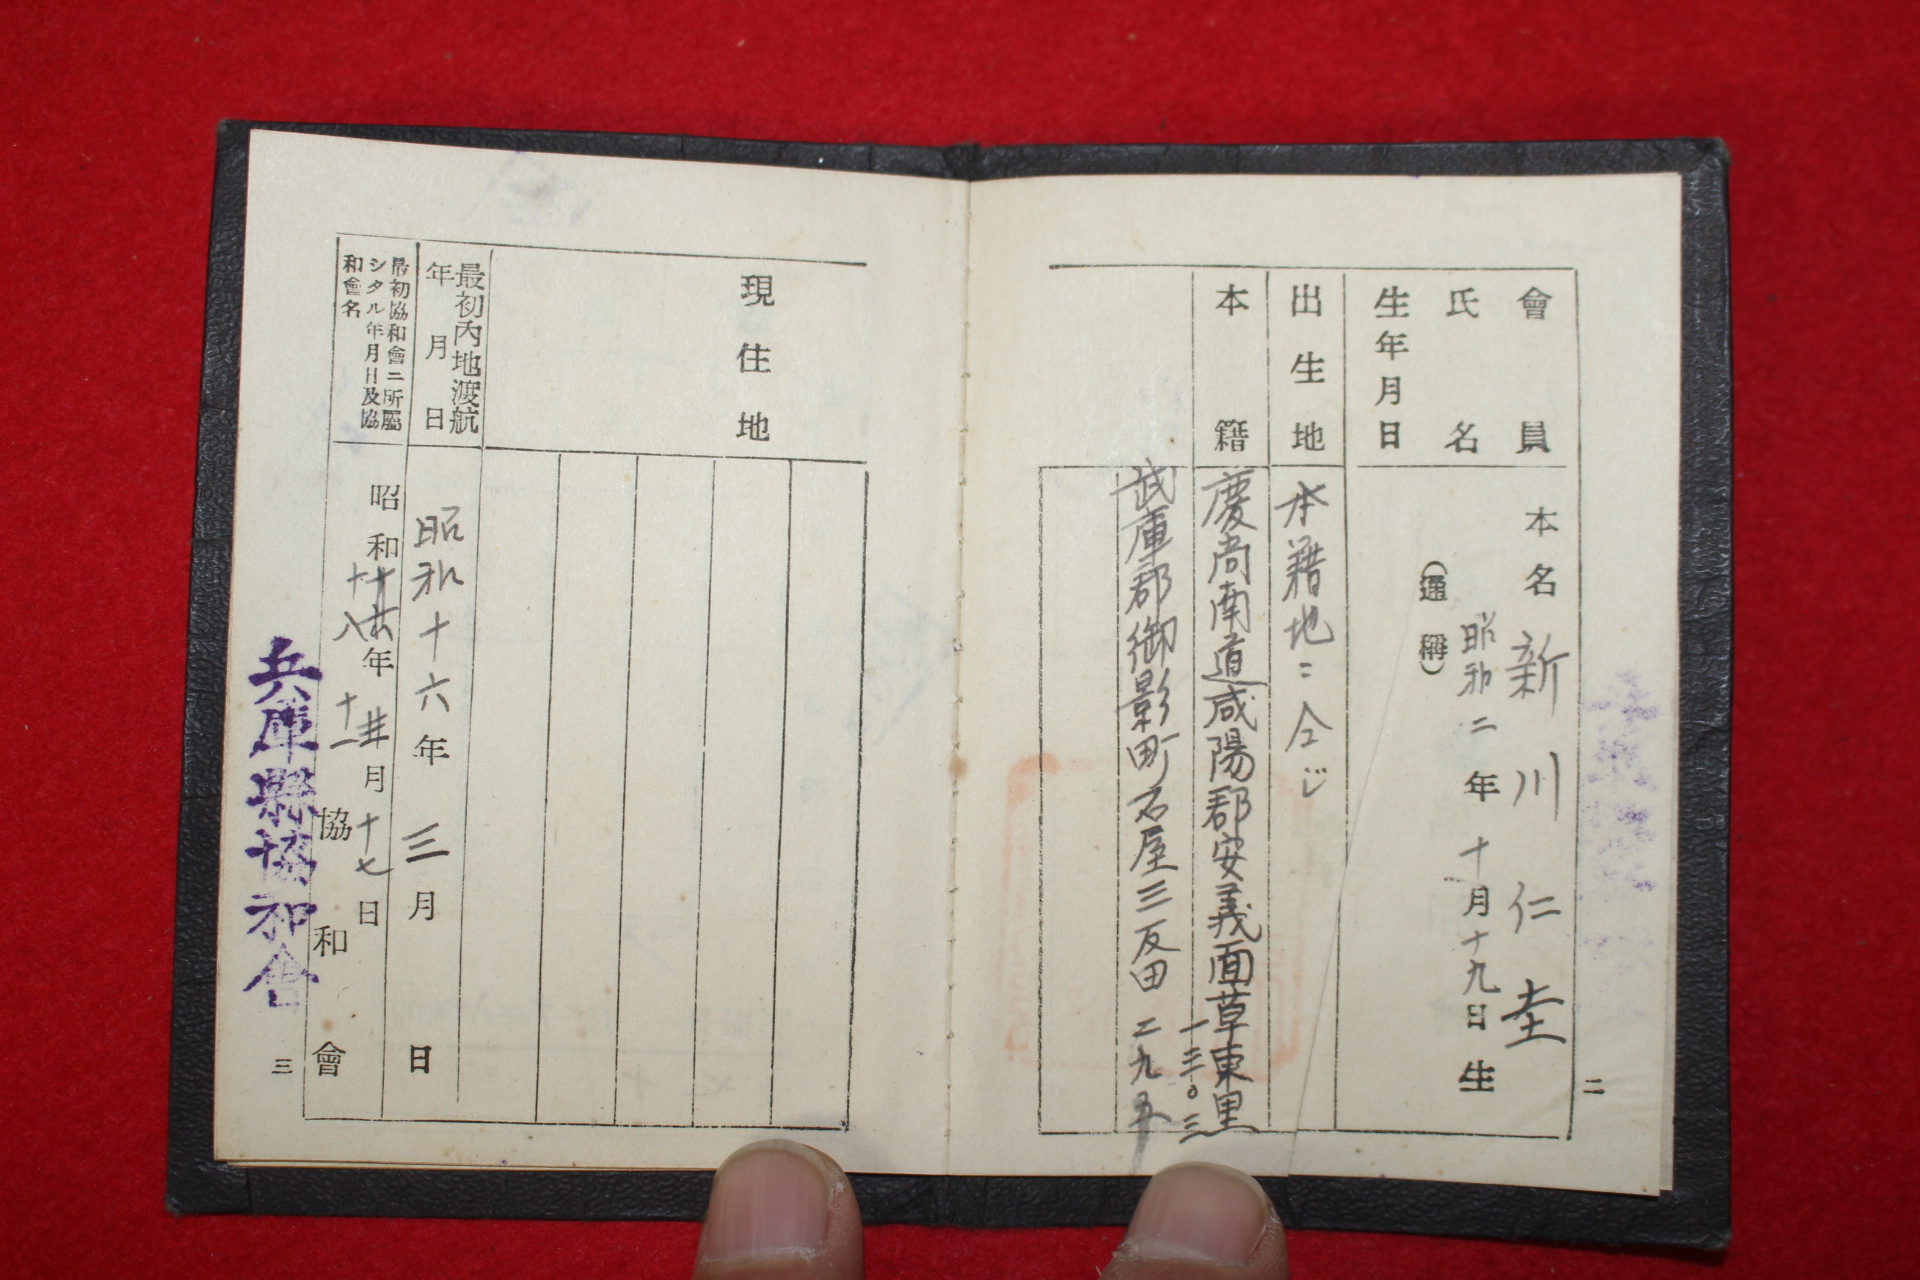 二
會員
氏名
生年月日
本名 新川仁圭
(通稱)
昭和二年十月十九日生
出生地
本籍地ニ仝じ
本籍
慶尚南道咸陽郡安義面草東里
一三〇三
武庫郡御影町石屋三反田二九五
現住地
最初內地渡航
年月日
昭和十六年三月 日
最初協和會ニ所屬
シタル年月日及協
和會名
昭和十八年十一月十七日
協和會
兵庫縣協和會
三